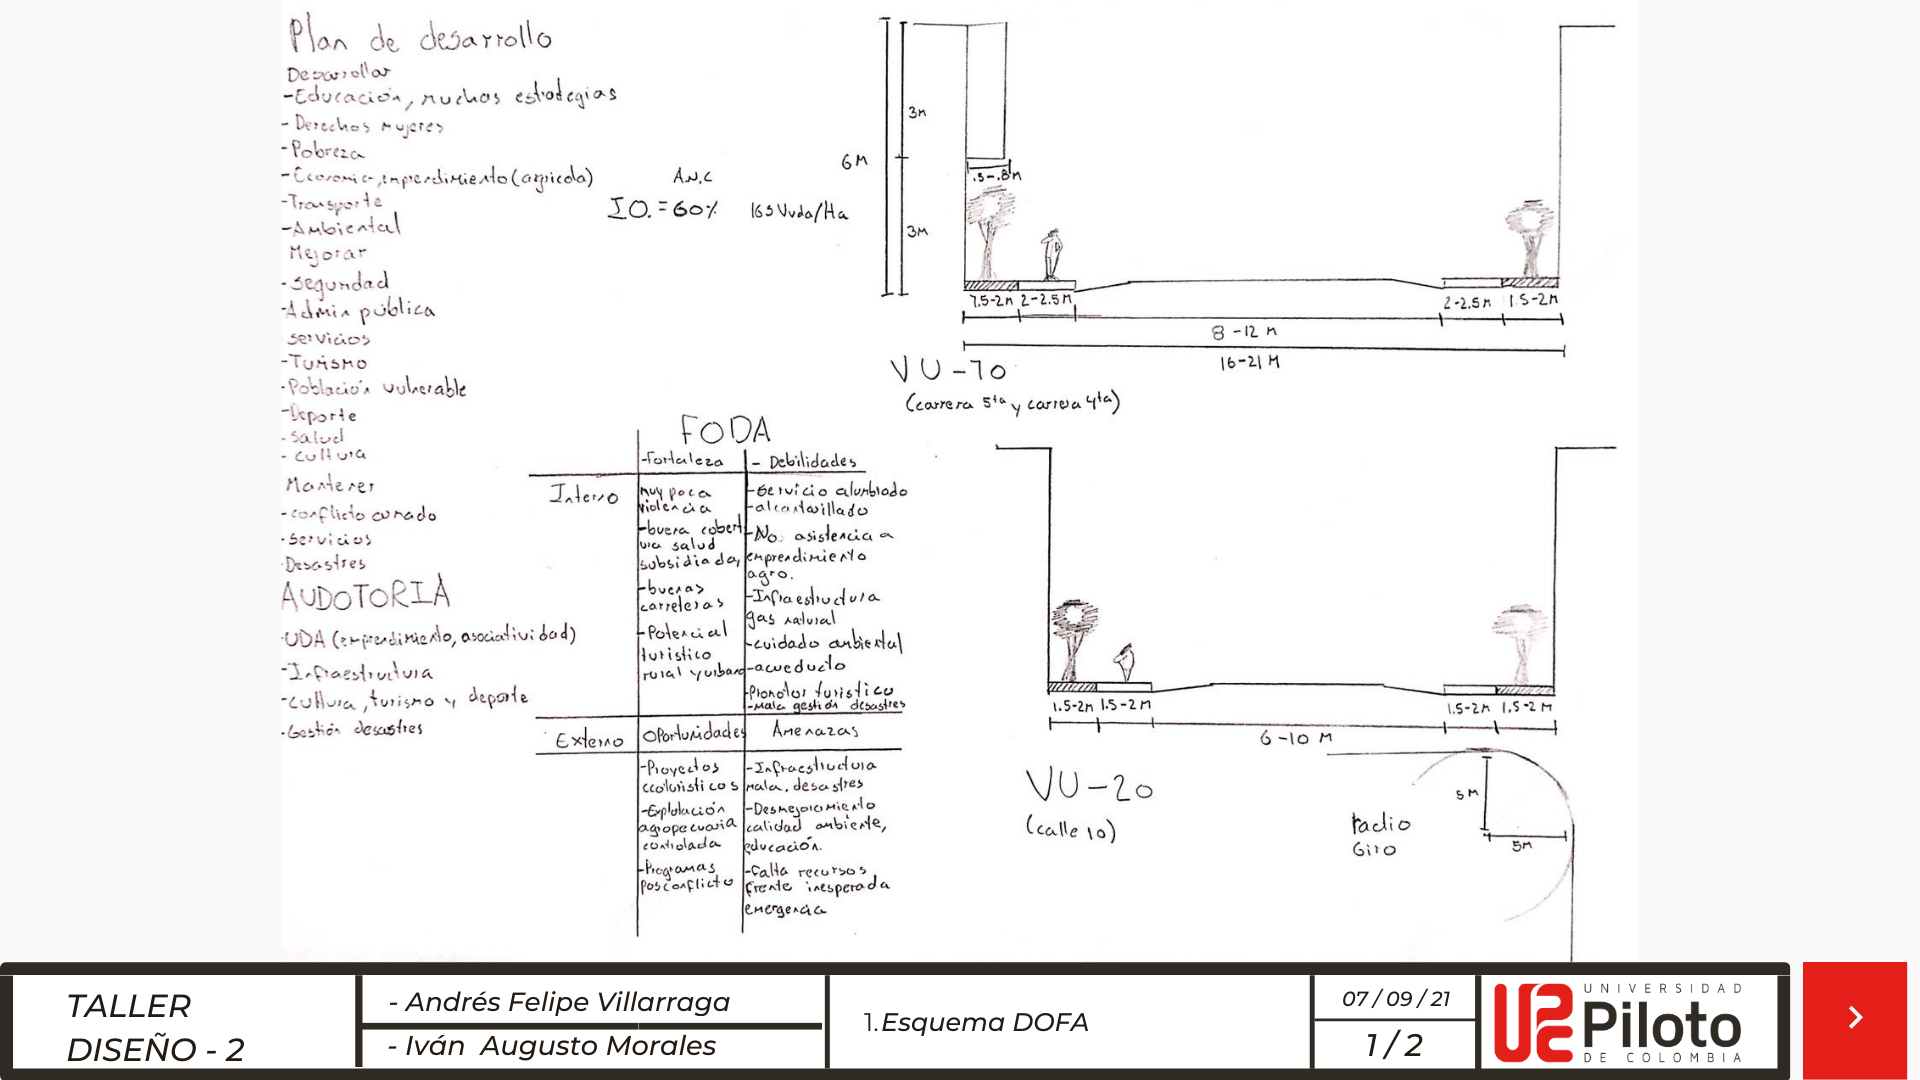 Plan de desarrollo
Desarrollar
-Educación, muchas estrategias
- Derechos mujeres
-Pobreza
-Economia, emprendimiento (agricola)
-Transporte
-Ambiental
Mejorar
-seguridad
-Admin pública
servicios
-Turismo
-Población vulnerable
-Deporte
-Salud
- cultura
Mantener
-conflicto armado
-Servicios
Desastres
AUDOTORIA
-UDA (emprendimiento, asociatividad)
-Infraestructura
-cultura, turismo y deporte
-Gestión desastres
A.N.C
I.O. = 60%
165 Vvda/Ha
FODA
-Fortaleza
- Debilidades
Interno
muy poca
violencia
-buena cobert
ura salud
subsidiada,
-buenas
carreteras
-Potencial
turistico
rural y urbano
-Servicio alumbrado
-alcantarillado
-No. asistencia a
emprendimiento
agro.
-Infraestructura
gas natural
-cuidado ambiental
-acueducto
-Promotor turistico
-Mala gestión desastres
Externo
Oportunidades
Amenazas
-Proyectos
ecoturisticos
-Explotación
agropecuaria
controlada
-Programas
posconflicto
-Infraestructura
mala, desastres
-Desmejoramiento
calidad ambiente,
educación.
-Falta recursos
frente inesperada
emergencia
3m
6M
.5-.8m
3M
1.5-2m
2-2.5M
2-2.5m
1.5-2M
8-12 M
16-21 M
VU-70
(carrera 5ta y carrera 4ta)
1.5-2m
1.5-2 M
1.5-2M
1.5-2 M
6-10 M
VU-20
(calle 10)
radio
Giro
5M
5M
TALLER
DISEÑO - 2
- Andrés Felipe Villarraga
- Iván Augusto Morales
1.Esquema DOFA
07 / 09 / 21
1 / 2
UNIVERSIDAD
Piloto
DE COLOMBIA